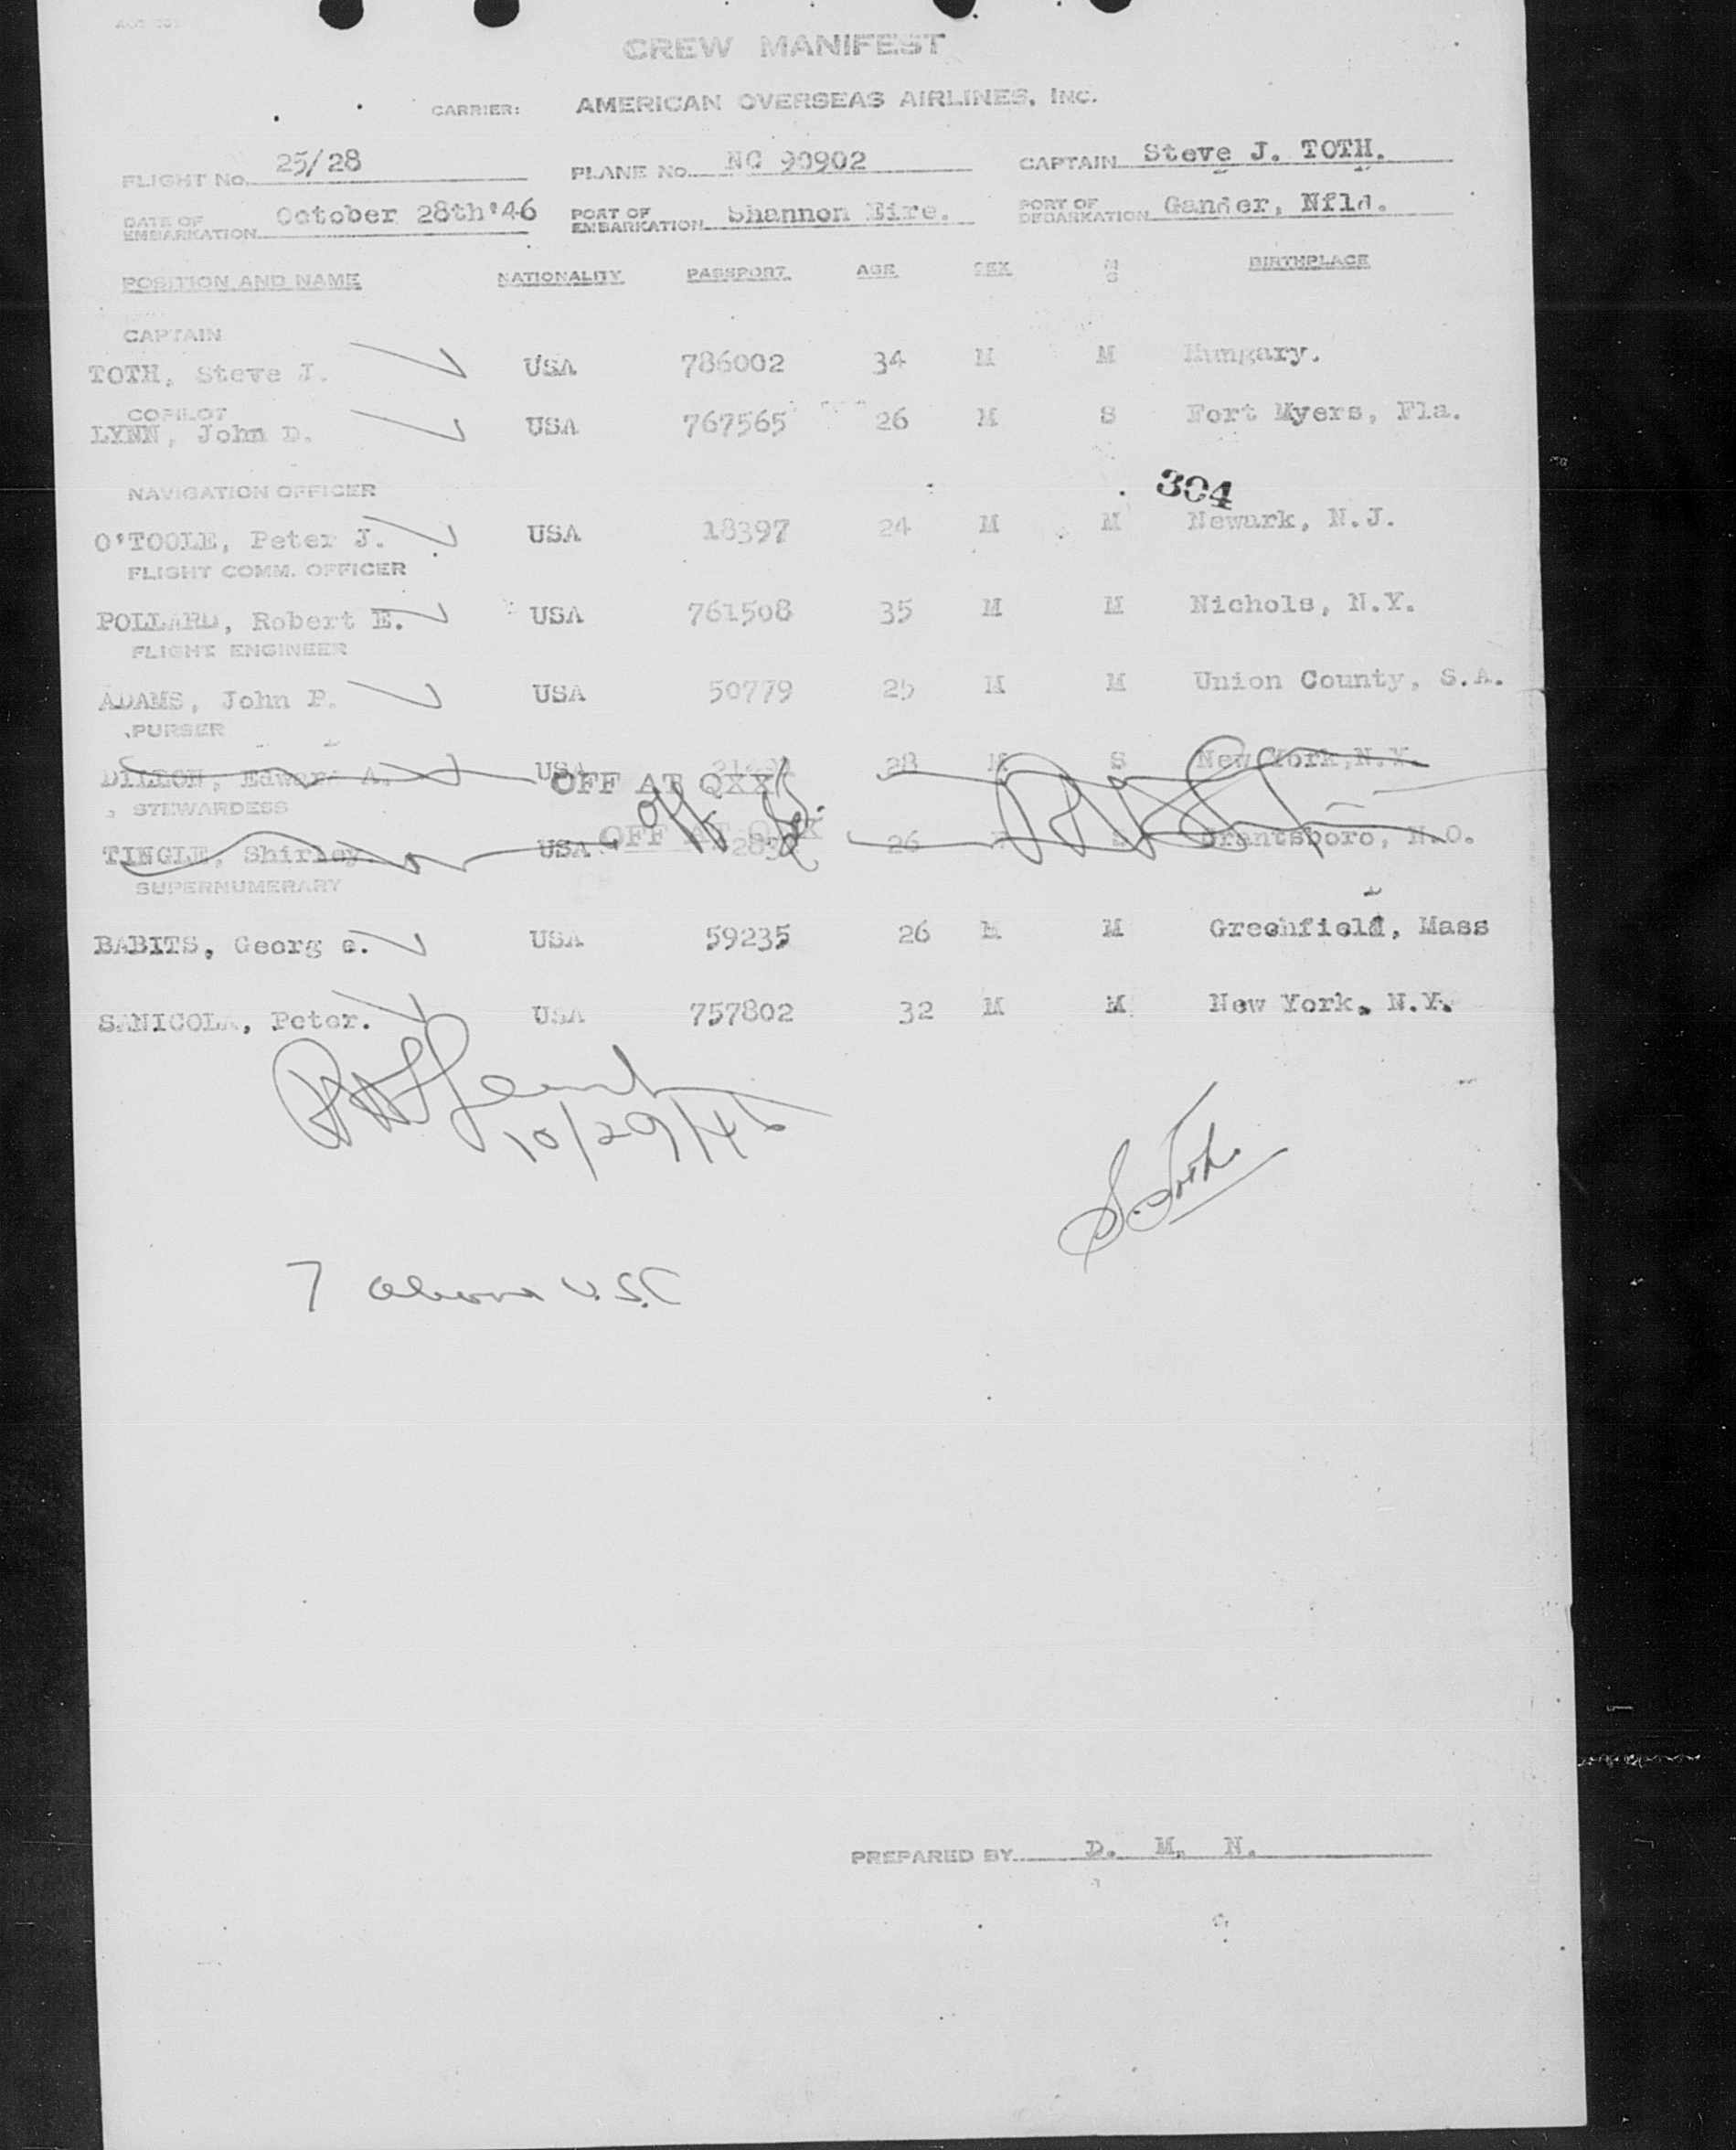 CREW MANIFEST
CARRIER: AMERICAN OVERSEAS AIRLINES, INC.
FLIGHT No. 25/28 PLANE No. NC 90902 CAPTAIN Steve J. TOTH.
DATE OF EMBARKATION October 28th'46 PORT OF EMBARKATION Shannon Eire. PORT OF DEBARKATION Gander, Nfld.
POSITION AND NAME NATIONALITY PASSPORT AGE SEX M S BIRTHPLACE
CAPTAIN
TOTH, Steve J. USA 786002 34 M M Hungary.
COPILOT
LYNN, John D. USA 767565 26 M S Fort Myers, Fla.
304
NAVIGATION OFFICER
O'TOOLE, Peter J. USA 18397 24 M M Newark, N.J.
FLIGHT COMM. OFFICER
POLLARD, Robert E. USA 761508 35 M M Nichols, N.Y.
FLIGHT ENGINEER
ADAMS, John P. USA 50779 25 M M Union County, S.A.
PURSER
Edward A. USA 28 M S New York, N.Y.
OFF AT QXX
STEWARDESS
TINGLE, Shirley. USA 26 S Grantsboro, N.C.
OFF AT QXX
SUPERNUMERARY
BABITS, Georg e. USA 59235 26 M M Greenfield, Mass
SANICOLA, Peter. USA 757802 32 M M New York. N.Y.
10/29/46
S. Toth.
7 above U.S.C
PREPARED BY D. M. N.